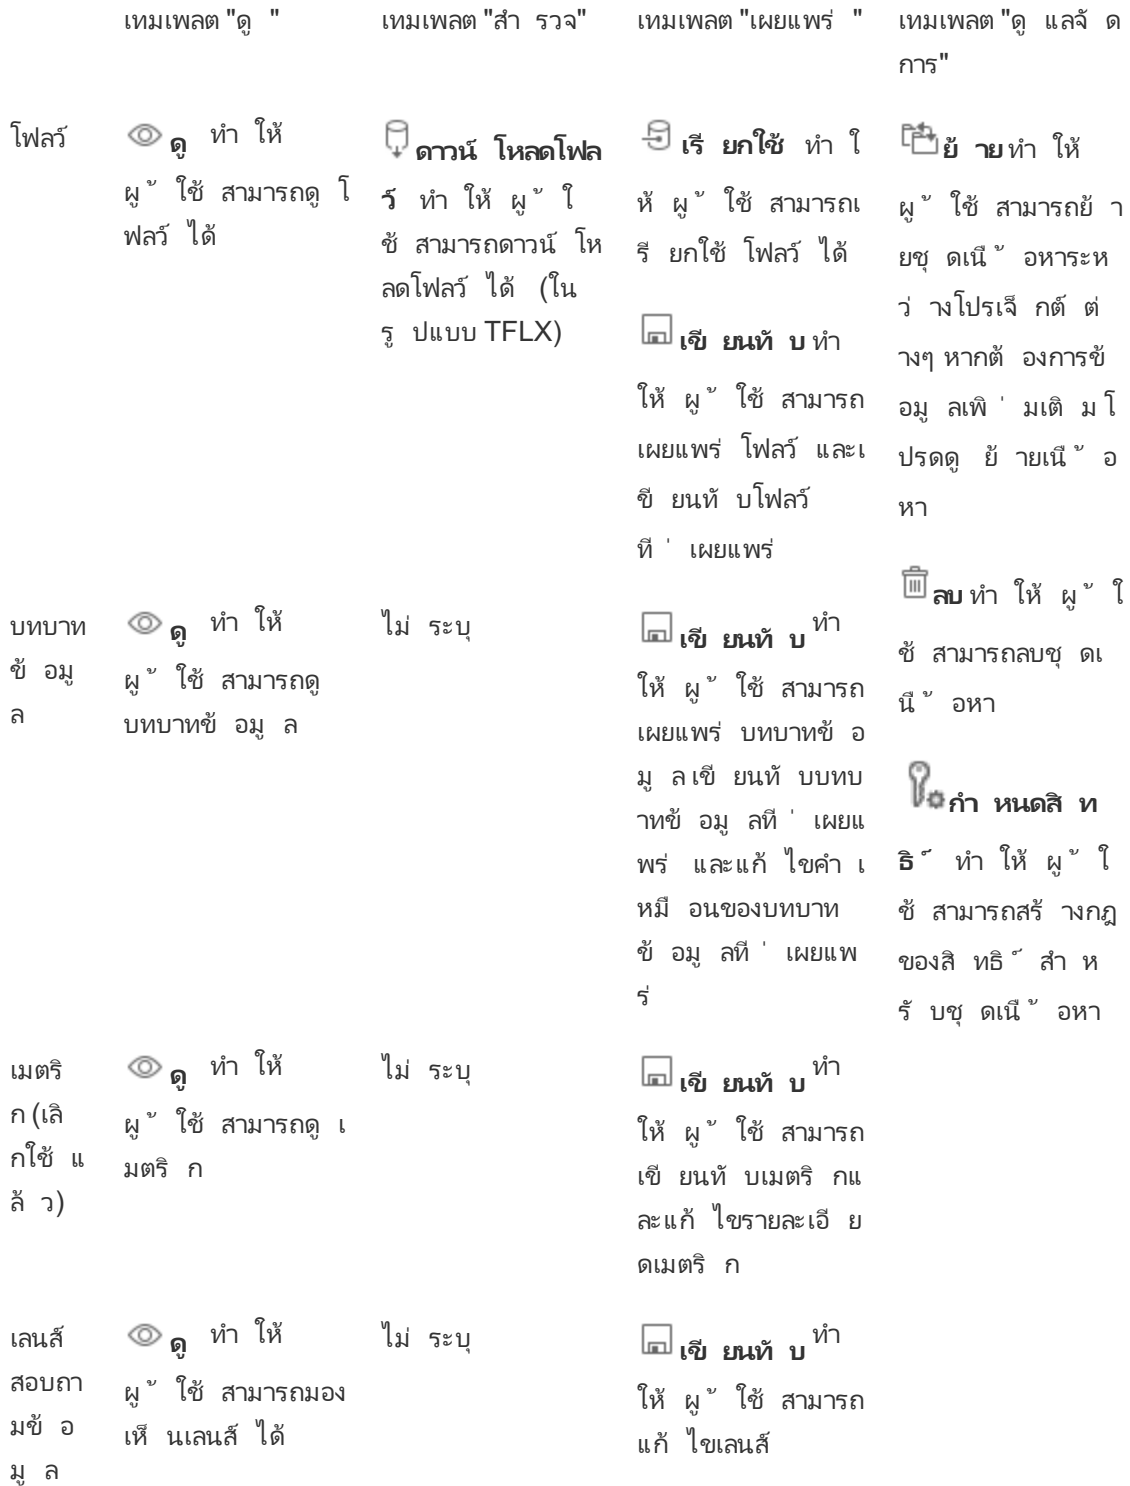 เทมเพลต "ดู"
เทมเพลต "สำรวจ"
เทมเพลต "เผยแพร่"
เทมเพลต "ดูแลจัด
การ"
โฟลว์
ดู ทำให้
ผู้ใช้สามารถดูโ
ฟลว์ได้
ดาวน์โหลดโฟล
ว์ ทำให้ผู้ใ
ช้สามารถดาวน์โห
ลดโฟลว์ได้ (ใน
รูปแบบ TFLX)
เรียกใช้ ทำใ
ห้ผู้ใช้สามารถเ
รียกใช้โฟลว์ได้
เขียนทับ ทำ
ให้ผู้ใช้สามารถ
เผยแพร่โฟลว์และเ
ขียนทับโฟลว์
ที่เผยแพร่
ย้าย ทำให้
ผู้ใช้สามารถย้า
ยชุดเนื้อหาระห
ว่างโปรเจ็กต์ต่
างๆ หากต้องการข้
อมูลเพิ่มเติม โ
ปรดดู ย้ายเนื้อ
หา
ลบ ทำให้ผู้ใ
ช้สามารถลบชุดเ
นื้อหา
กำหนดสิท
ธิ์ ทำให้ผู้ใ
ช้สามารถสร้างกฎ
ของสิทธิ์สำห
รับชุดเนื้อหา
บทบาท
ข้อมู
ล
ดู ทำให้
ผู้ใช้สามารถดู
บทบาทข้อมูล
ไม่ระบุ
เขียนทับ ทำ
ให้ผู้ใช้สามารถ
เผยแพร่บทบาทข้อ
มูล เขียนทับบทบ
าทข้อมูลที่เผยแ
พร่ และแก้ไขคำเ
หมือนของบทบาท
ข้อมูลที่เผยแพ
ร่
เมตริ
ก (เลิ
กใช้แ
ล้ว)
ดู ทำให้
ผู้ใช้สามารถดูเ
มตริก
ไม่ระบุ
เขียนทับ ทำ
ให้ผู้ใช้สามารถ
เขียนทับเมตริกแ
ละแก้ไขรายละเอีย
ดเมตริก
เลนส์
สอบถา
มข้อ
มูล
ดู ทำให้
ผู้ใช้สามารถมอง
เห็นเลนส์ได้
ไม่ระบุ
เขียนทับ ทำ
ให้ผู้ใช้สามารถ
แก้ไขเลนส์